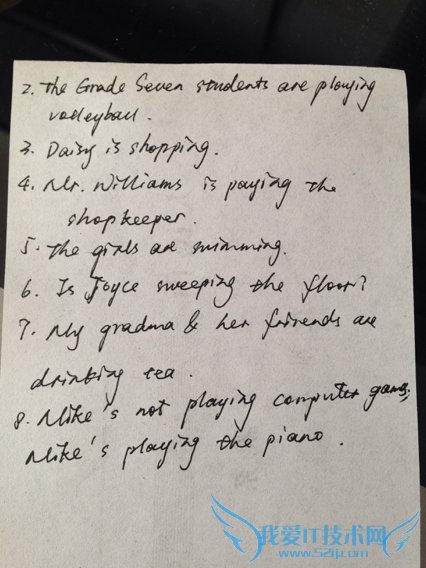 2. The Grade Seven students are playing
volleyball.
3. Daisy is shopping.
4. Mr. Williams is paying the
shopkeeper.
5. The girls are swimming.
6. Is Joyce sweeping the floor?
7. My gradma & her friends are
drinking tea.
8. Mike's not playing computer games,
Mike's playing the piano.
我爱IT技术网
www.52ij.com